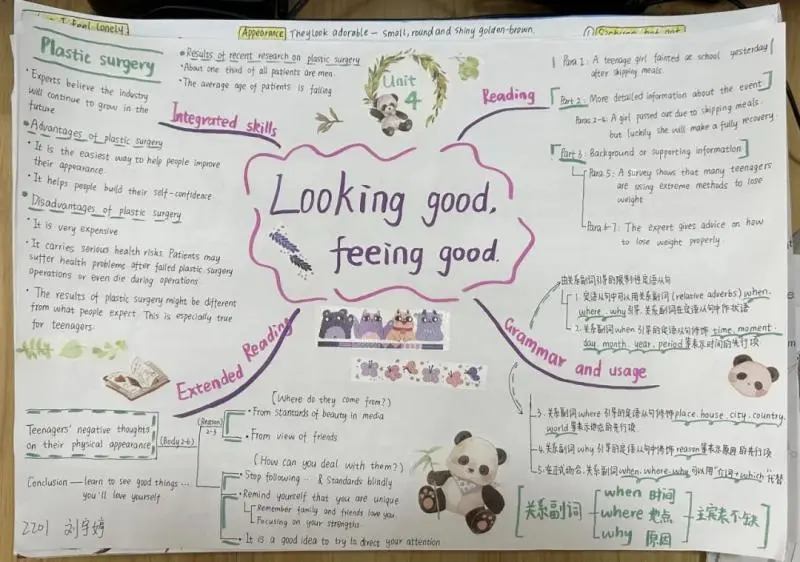 I feel lonely
Appearance They look adorable - small, round and shiny golden-brown.
Plastic surgery
• Experts believe the industry
will continue to grow in the
future
• Advantages of plastic surgery
• It is the easiest way to help people improve
their appearance.
• It helps people build their self-confidence
• Disadvantages of plastic surgery
• It is very expensive
• It carries serious health risks. Patients may
suffer health problems after failed plastic surgery
operations or even die during operations
• The results of plastic surgery might be different
from what people expect. This is especially true
for teenagers.
• Results of recent research on plastic surgery
• About one third of all patients are men.
• The average age of patients is falling
Integrated skills
Unit
4
Reading
Para 1: A teenage girl fainted at school yesterday
after skipping meals.
Part 2: More detailed information about the event
Paras 2-4: A girl passed out due to skipping meals.
but luckily she will make a fully recovery.
Part 3: Background or supporting information
Para 5: A survey shows that many teenagers
are using extreme methods to lose
weight
Para 6-7: The expert gives advice on how
to lose weight properly.
Looking good,
feeing good.
Grammar and usage
由关系副词引导的限制性定语从句
1. 定语从句中可以用关系副词 (relative adverbs) when.
where. why引导. 关系副词在定语从句中作状语
2. 关系副词when引导的定语从句修饰 time. moment.
day. month. year. period等表示时间的先行项
3. 关系副词where引导的定语从句修饰place. house. city. country.
world等表示地点的先行项.
4. 关系副词 why 引导的定语从句中修饰reason等表示原因的先行项
5. 在正式场合. 关系副词when. where. why可以用"介词+which"代替
关系副词
when 时间
where 地点
why 原因
主宾表不缺
Extended Reading
Teenagers' negative thoughts
on their physical appearance
(Body 2-6)
(Reason)
2-3
(Where do they come from?)
• From standards of beauty in media
• From view of friends
(How can you deal with them?)
• Stop following ... & Standards blindly
• Remind yourself that you are unique
Remember family and friends love you.
Focusing on your strengths
• It is a good idea to try to direct your attention
Conclusion — learn to see good things ...
you'll love yourself
2201 刘宇婷